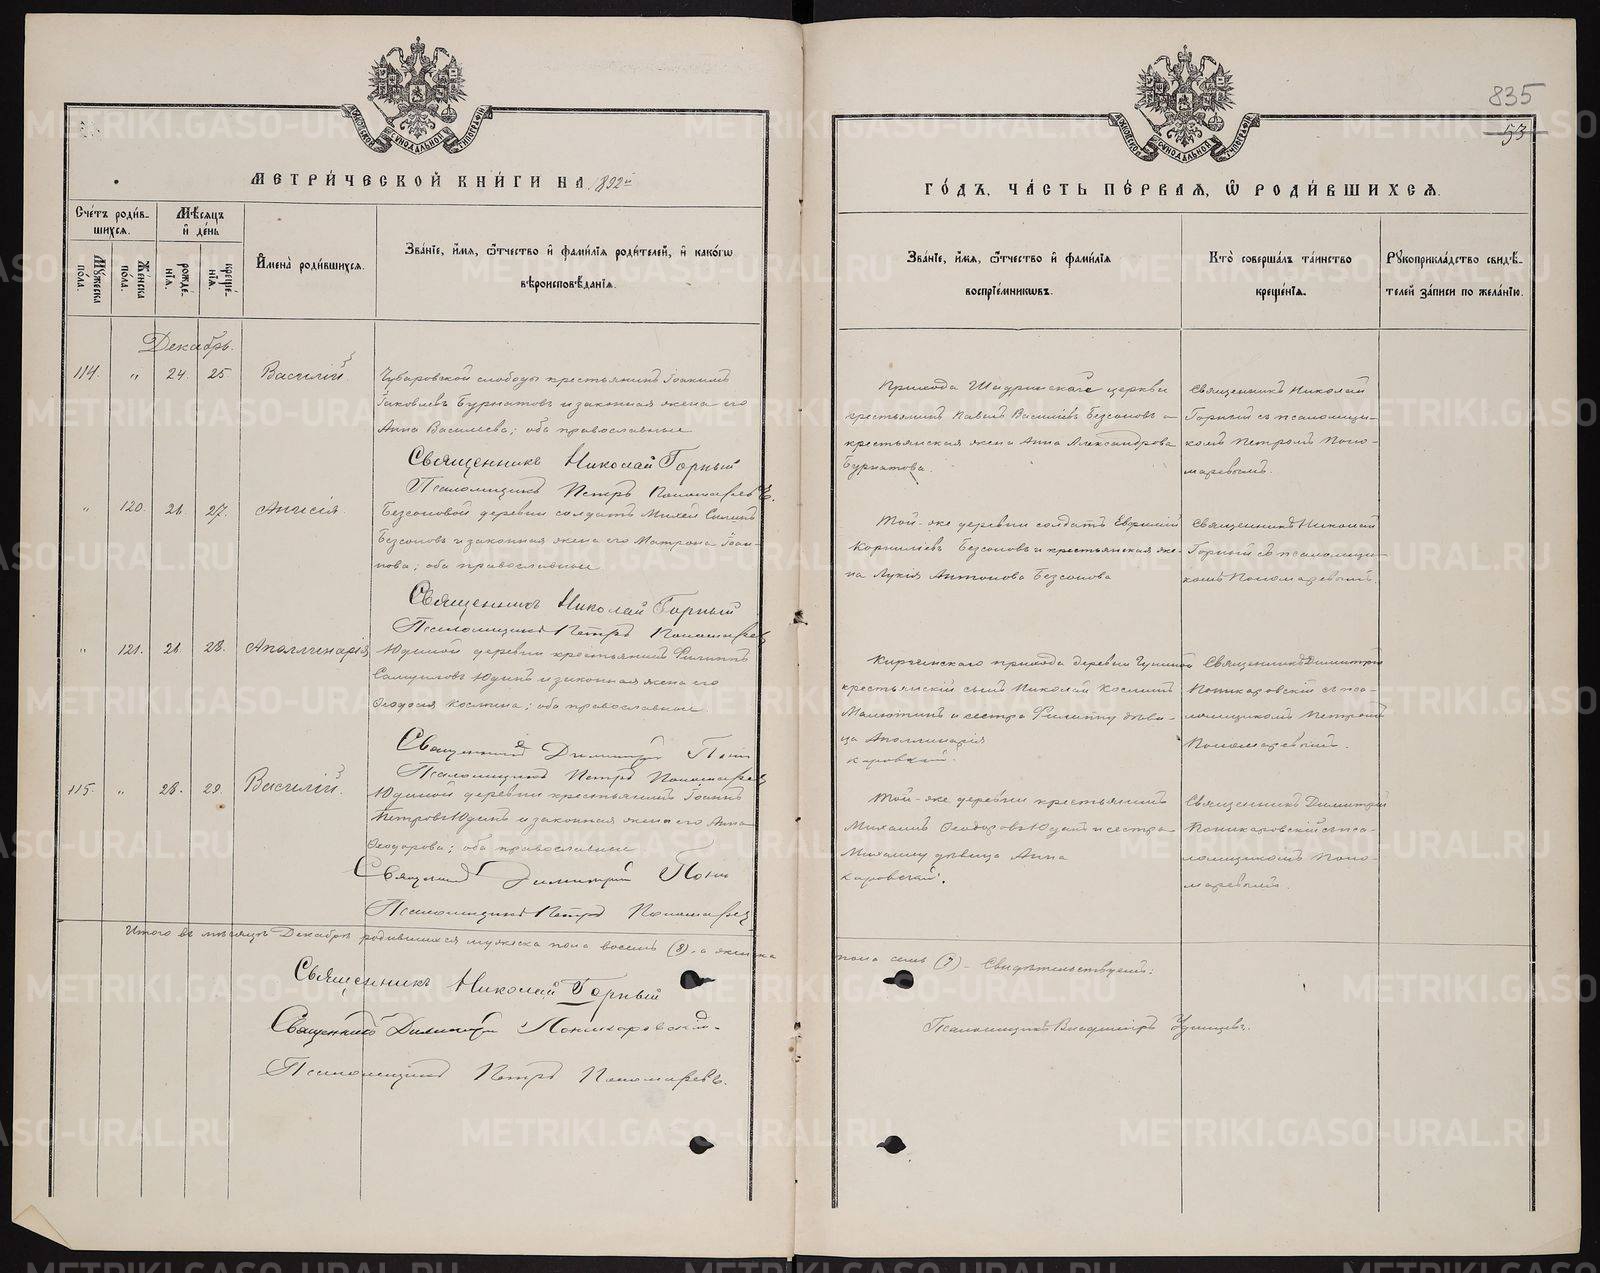 835
53
МЕТРИ́ЧЕСКОЙ КНИ́ГИ НА 1892й
ГО́ДЪ, ЧА́СТЬ ПЕ́РВАЯ, Ѿ РОДИ́ВШИХСѦ.
Сче́тъ роди́в-
шихсѧ.
Мѣ́сѧцъ
и҆ де́нь
Мꙋ́жеска по́ла.
Же́нска по́ла.
рожде́-
нїѧ.
креще́-
нїѧ.
И҆мена̀ роди́вшихсѧ.
Зва́нїе, и҆́мѧ, ѻ҆́тчество и҆ фами́лїѧ роди́телей, и҆ како́гѡ
вѣроисповѣ́данїѧ.
Зва́нїе, и҆́мѧ, ѻ҆́тчество и҆ фами́лїѧ
воспрїе́мникѡвъ.
Кто̀ соверша́лъ та́инство
креще́нїѧ.
Рꙋкоприкла́дство свидѣ́-
телей за́писи по жела́нїю.
Декабрь.
114. " 24. 25. Василій
Чуваровской слободы крестьянинъ Іоакимъ
Іаковлевъ Бурнатовъ и законная жена его
Анна Васильева; оба православные
Священникъ Николай Горный
Псаломщикъ Петръ Пономаревъ.
Прихода Шадринскаго церкви
крестьянинъ Павелъ Василіевъ Безсоновъ и
крестьянская жена Анна Александрова
Бурнатова.
Священникъ Николай
Горный съ псаломщи-
комъ Петромъ Поно-
маревымъ.
" 120. 26. 27. Анисія
Безсоновой деревни солдатъ Милей Силинъ
Безсоновъ и законная жена его Матрона Іоан-
нова; оба православные
Священникъ Николай Горный
Псаломщикъ Петръ Пономаревъ
Той-же деревни солдатъ Евфимій
Корниліевъ Безсоновъ и крестьянская же-
на Лукія Антонова Безсонова
Священникъ Николай
Горный съ псаломщи-
комъ Пономаревымъ.
" 121. 26. 28. Аполлинарія
Юдиной деревни крестьянинъ Филиппъ
Самуиловъ Юдинъ и законная жена его
Ѳеодосія Космина; оба православные
Священникъ Димитрій Пони
каровскій.
Псаломщикъ Петръ Пономаревъ
Киргинскаго прихода деревни
крестьянскій сынъ Николай Косминъ
Малютинъ и сестра Филиппу дѣви-
ца Аполлинарія
Священникъ Димитрій
Поникаровскій съ пса-
ломщикомъ Петромъ
Пономаревымъ.
115. " 28. 29. Василій
Юдиной деревни крестьянинъ Іоаннъ
Петровъ Юдинъ и законная жена его Анна
Ѳеодорова; оба православные
Священникъ Димитрій Пони
каровскій.
Псаломщикъ Петръ Пономаревъ
Той-же деревни крестьянинъ
Михаилъ Ѳеодоровъ Юдинъ и сестра
Михаилу дѣвица Анна
Священникъ Димитрій
Поникаровскій съ пса-
ломщикомъ Поно-
маревымъ.
Итого въ мѣсяцѣ Декабрѣ родившихся мужеска пола восемь (8), а женска
пола семь (7). Свидѣтельствуемъ:
Священникъ Николай Горный
Священникъ Димитрій Поникаровскій.
Псаломщикъ Петръ Пономаревъ.
Псаломщикъ Владиміръ
METRIKI.GASO-URAL.RU